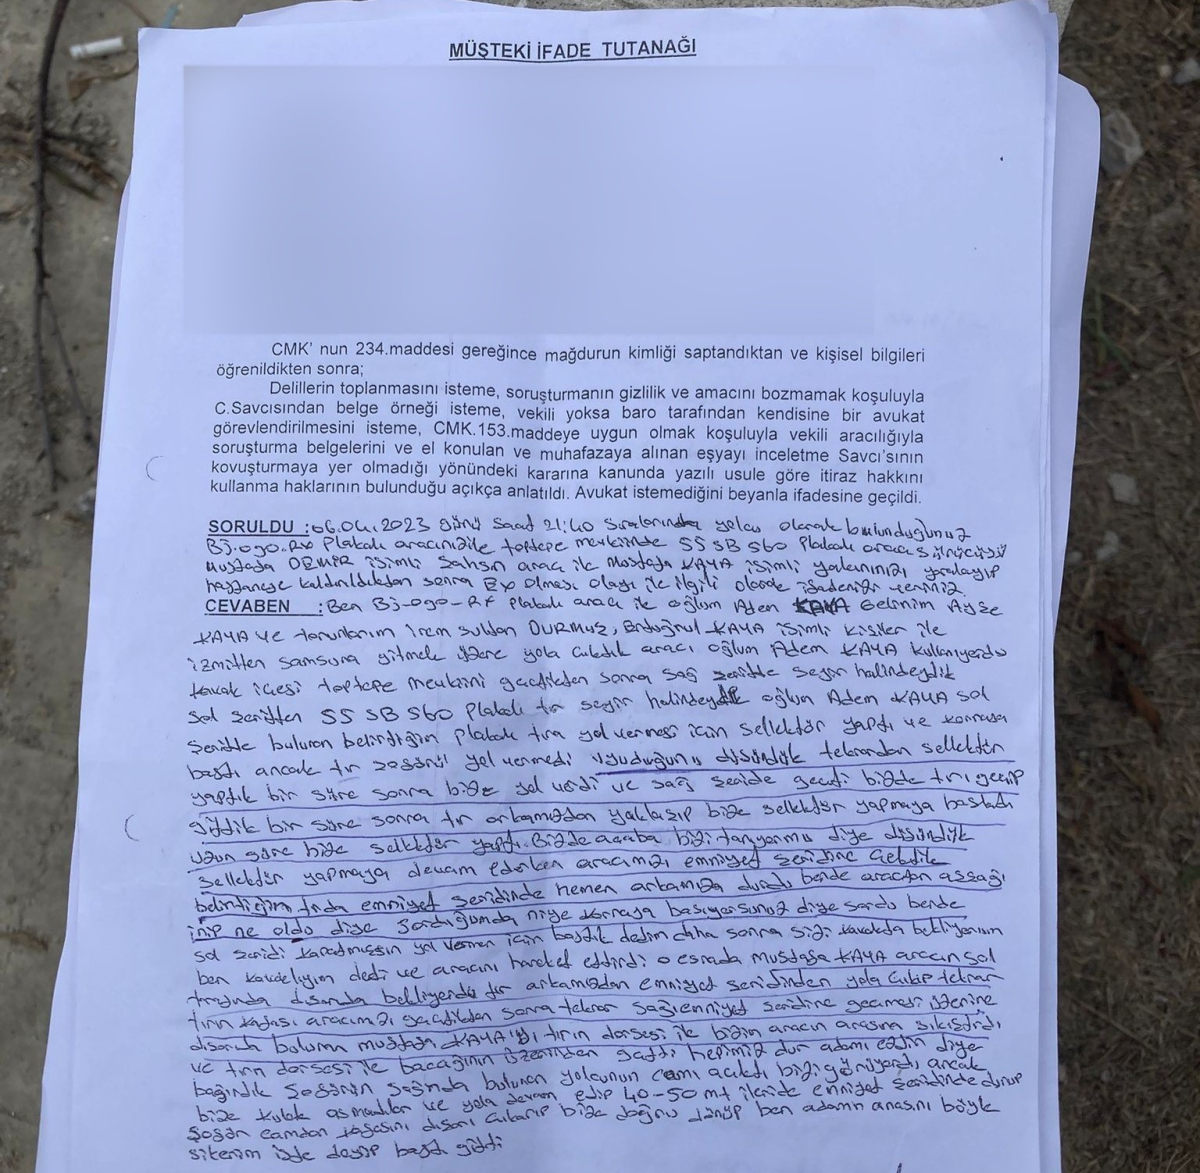 MÜŞTEKİ İFADE TUTANAĞI
CMK' nun 234.maddesi gereğince mağdurun kimliği saptandıktan ve kişisel bilgileri
öğrenildikten sonra;
Delillerin toplanmasını isteme, soruşturmanın gizlilik ve amacını bozmamak koşuluyla
C.Savcısından belge örneği isteme, vekili yoksa baro tarafından kendisine bir avukat
görevlendirilmesini isteme, CMK.153.maddeye uygun olmak koşuluyla vekili aracılığıyla
soruşturma belgelerini ve el konulan ve muhafazaya alınan eşyayı inceletme Savcı'sının
kovuşturmaya yer olmadığı yönündeki kararına kanunda yazılı usule göre itiraz hakkını
kullanma haklarının bulunduğu açıkça anlatıldı. Avukat istemediğini beyanla ifadesine geçildi.
SORULDU :06.04.2023 günü Saat 21:40 Sıralarında yolcu olarak bulunduğunuz
Plakalı aracınız ile toptepe mevkiinde 55 SB 560 Plakalı araç sürücüsü
Mustafa DEMİR isimli Şahsın araç ile Mustafa KAYA isimli yakınınızı yaralayıp
hastaneye kaldırıldıktan sonra Ex olması olayı ile ilgili olarak ifadenizi veriniz
CEVABEN :Ben plakalı araç ile oğlum Adem KAYA Gelinim Ayşe
KAYA ve torunlarım İrem sultan DURMUŞ, Ertuğrul KAYA isimli kişiler ile
izmitten samsuna gitmek üzere yola çıktık aracı oğlum Adem KAYA kullanıyordu
kavak ilçesi toptepe mevkiini geçtikten sonra sağ şeritte seyir halindeydik
sol şeritten 55 SB 560 Plakalı tır seyir halindeydi oğlum Adem KAYA sol
şeritte bulunan belirttiğim plakalı tıra yol vermesi için sellektör yaptı ve kornaya
bastı ancak tır şoförü yol vermedi uyuduğunu düşündük tekrardan sellektör
yaptık bir süre sonra bize yol verdi ve sağ şeride geçti bizde tırı geçip
gittik bir süre sonra tır arkamızdan yaklaşıp bize sellektör yapmaya başladı
uzun süre bize sellektör yaptı. Bizde acaba bizi tanıyormu diye düşündük
sellektör yapmaya devam ederken aracımızı emniyet şeridine çektik
belirttiğim tırda emniyet şeridinde hemen arkamıza durdu bende araçtan aşşağı
inip ne oldu diye sorduğumda niye kornaya basıyorsunuz diye sordu bende
sol şeridi kapatmışsın yol vermen için bastık dedim daha sonra sizi kavakda bekliyorum
ben kavaklıyım dedi ve aracını hareket ettirdi o esnada Mustafa KAYA aracın sol
tarafında dışarıda bekliyordu tır arkamızdan emniyet şeridinden yola çıkıp tekrar
tırın kafası aracımızı geçtikten sonra tekrar sağ emniyet şeridine geçmesi üzerine
dışarıda bulunan mustafa KAYA'yı tırın dorsesi ile bizim aracın arasına sıkıştırdı
ve tırın dorsesi ile bacağının üzerinden geçti hepimiz dur adamı ezdin diye
bağırdık şoförün sağında bulunan yolcunun camı açıktı bizi görüyordu ancak
bize kulak asmadılar ve yola devam edip 40-50 mt ileride emniyet şeridinde durup
şoför camdan kafasını dışarı çıkarıp bize doğru dönüp ben adamın anasını böyle
sikerim işte deyip bastı gitti